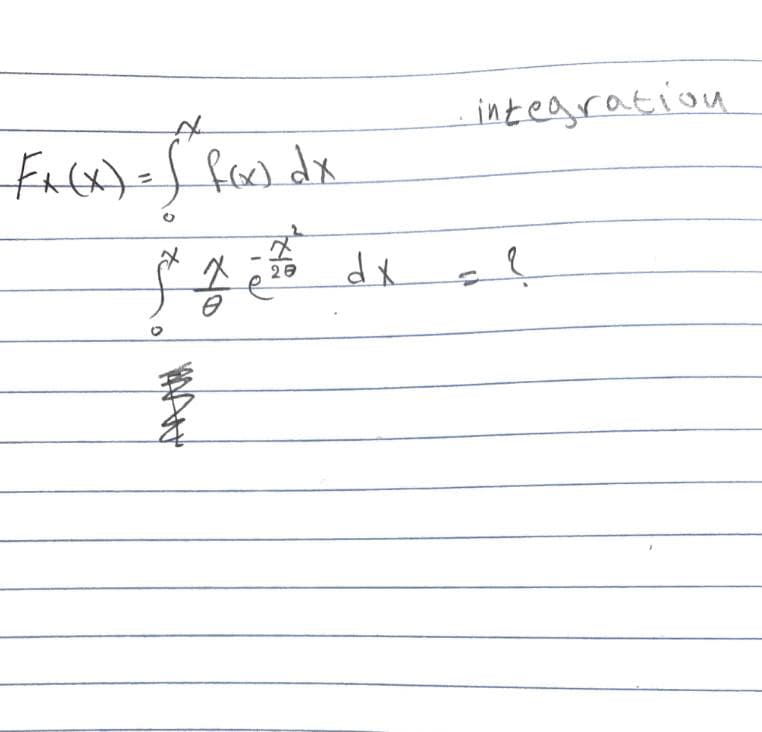 integration
Fx(x) = ∫₀ˣ f(x) dx
∫₀ˣ x/θ e^(-x²/2θ) dx = ?